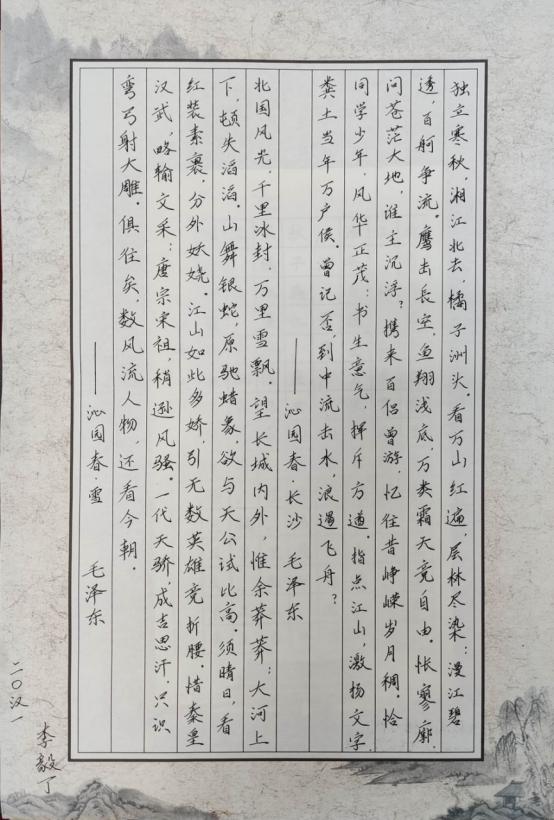 独立寒秋，湘江北去，橘子洲头。看万山红遍，层林尽染；漫江碧
透，百舸争流。鹰击长空，鱼翔浅底，万类霜天竞自由。怅寥廓，
问苍茫大地，谁主沉浮？携来百侣曾游，忆往昔峥嵘岁月稠。恰
同学少年，风华正茂；书生意气，挥斥方遒。指点江山，激扬文字，
粪土当年万户侯。曾记否，到中流击水，浪遏飞舟？
——沁园春·长沙 毛泽东
北国风光，千里冰封，万里雪飘。望长城内外，惟余莽莽；大河上
下，顿失滔滔。山舞银蛇，原驰蜡象，欲与天公试比高。须晴日，看
红装素裹，分外妖娆。江山如此多娇，引无数英雄竞折腰。惜秦皇
汉武，略输文采；唐宗宋祖，稍逊风骚。一代天骄，成吉思汗，只识
弯弓射大雕。俱往矣，数风流人物，还看今朝。
——沁园春·雪 毛泽东
二〇汉一
李毅丁